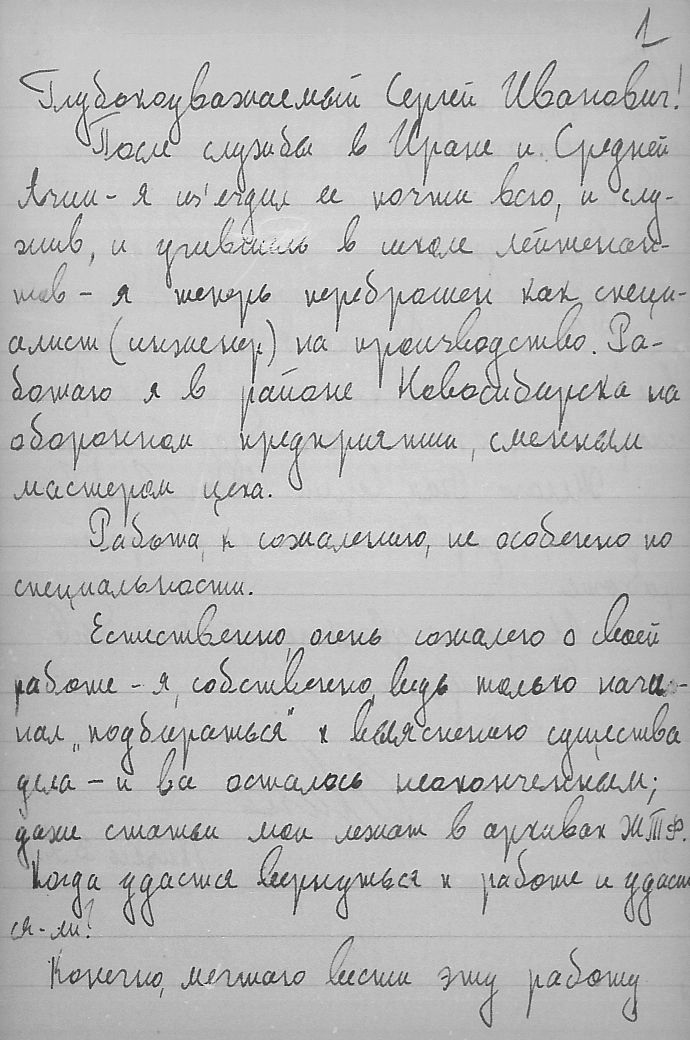 1
Глубокоуважаемый Сергей Иванович!
После службы в Иране и Средней
Азии – я из'ездил ее почти всю, и слу-
жив, и учившись в школе лейтенан-
тов – я теперь переброшен как специ-
алист (инженер) на производство. Ра-
ботаю я в районе Новосибирска на
оборонном предприятии, сменным
мастером цеха.
Работа, к сожалению, не особенно по
специальности.
Естественно, очень сожалею о своей
работе – я, собственно, ведь только начи-
нал „подбираться" к выяснению существа
дела – и все осталось неоконченным;
даже статьи мои лежат в архивах ЖТФ.
Когда удастся вернуться к работе и удаст
ся-ли?
Конечно, мечтаю вести эту работу